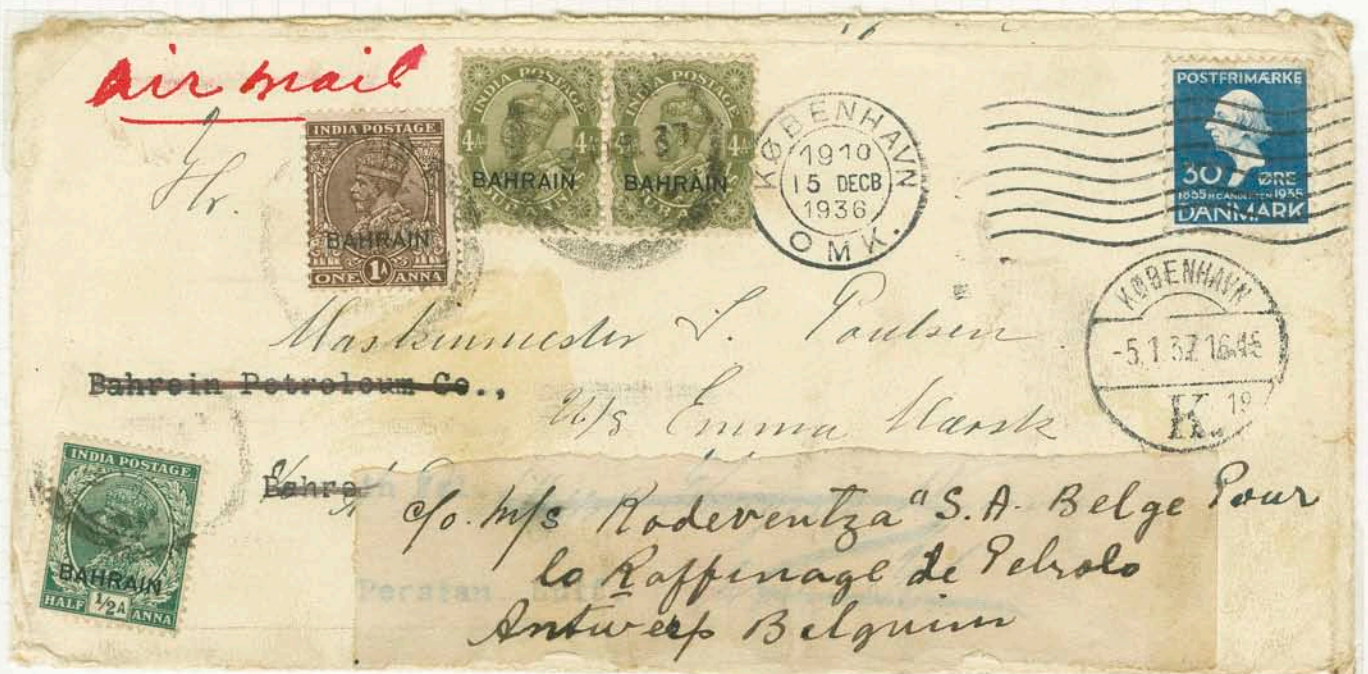 air mail
INDIA POSTAGE
BAHRAIN
ONE 1A ANNA
INDIA POSTAGE
4A 4A
BAHRAIN
INDIA POSTAGE
4A 4A
BAHRAIN
KØBENHAVN
1910
15 DECB
1936
OMK.
POSTFRIMÆRKE
30 ØRE
1835 H.C. ANDERSEN 1935
DANMARK
KØBENHAVN
-5.1.37.16.45
K. 19
Hr.
Maskinmester S. Poulsen
Bahrein Petroleum Co.,
M/S Emma Mærsk
Bahrein
INDIA POSTAGE
BAHRAIN
HALF 1/2A ANNA
c/o. M/s Rodeventza "S.A. Belge Pour
la Raffinage de Petrolo
Persian Gulf
Antwerp Belguim